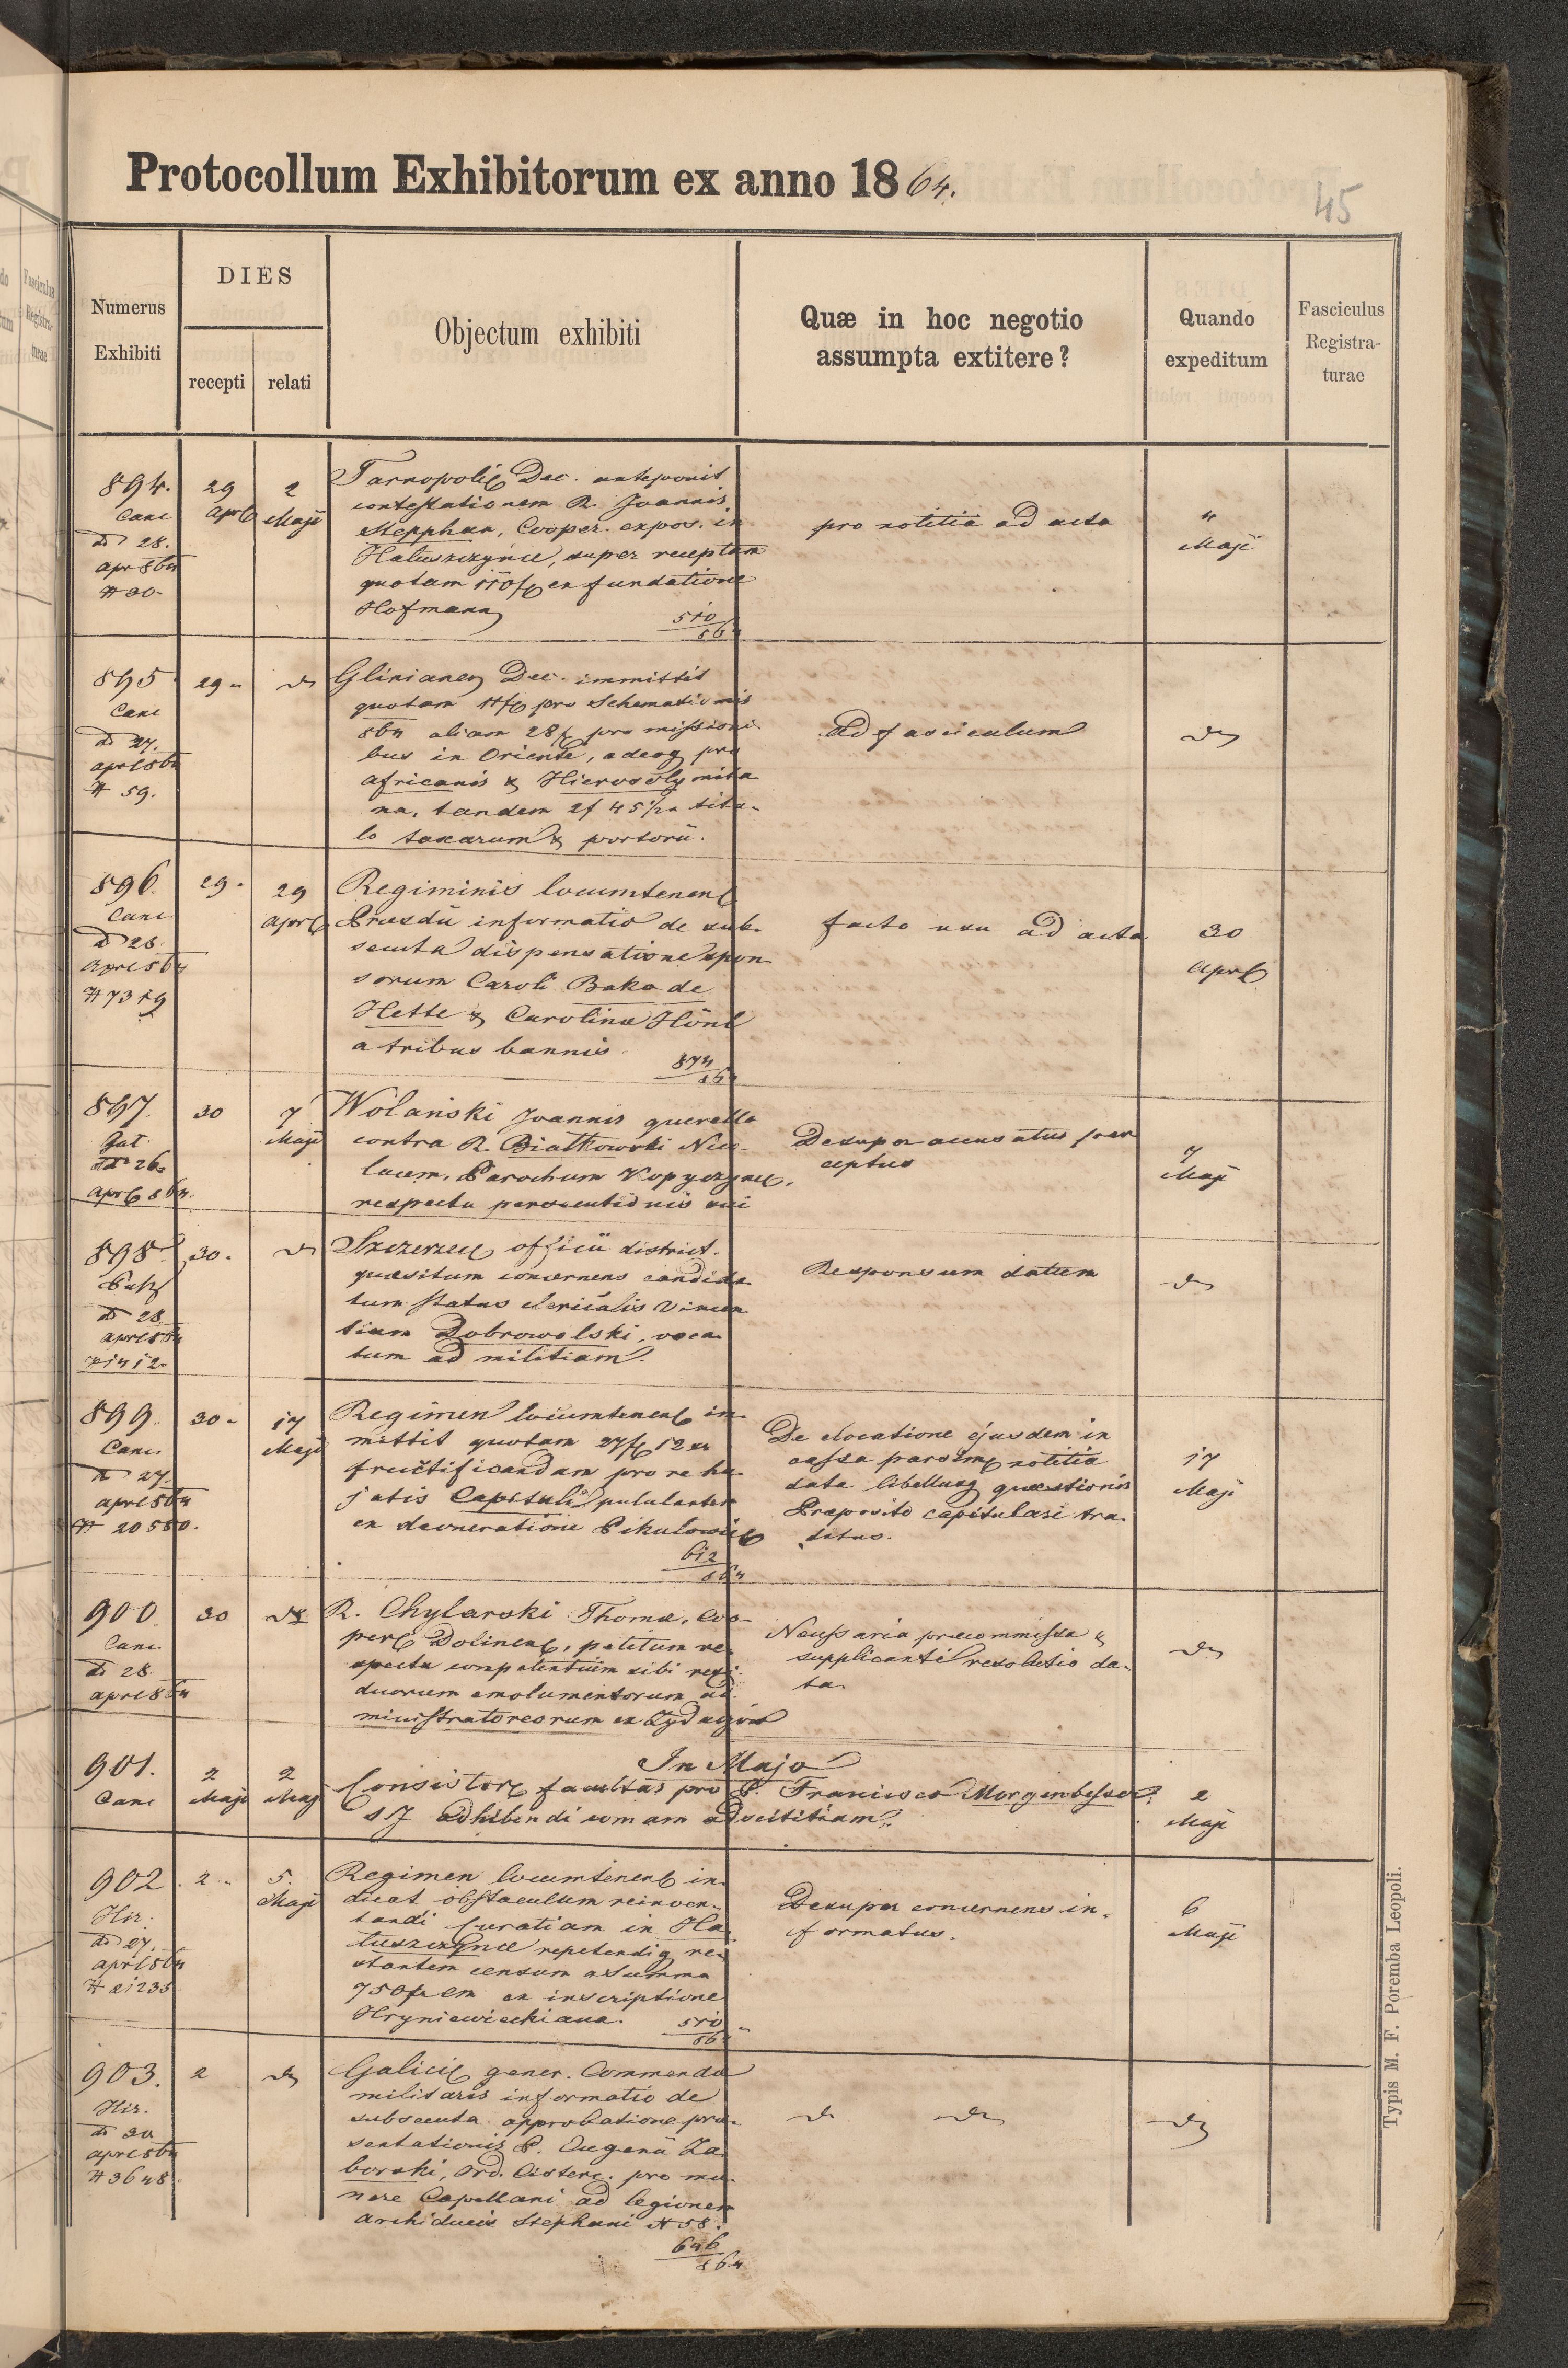 Protocollum Exhibitorum ex anno 1864.
45
Numerus Exhibiti
DIES
recepti
relati
Objectum exhibiti
Quæ in hoc negotio assumpta extitere?
Quando expeditum
Fasciculus Registra-turae
894.
Canc
dd 28.
apr 864
# 30-
29 apr
2 Maji
Tarnopolien Dec. anteponit
contestationem R. Joannis
Stepphan, Cooper. expos. in
Haluszczynce, super receptam
quotam 110 f ex fundatione
Hofmann
510
864
pro notitia ad acta
4 Maji
895
Canc
dd 27.
apr 864
# 59.
29-
do
Glinianen Dec. immittit
quotam pro Schematismis
864 aliam 28 f pro missioni
bus in Oriente, adeoq pro
africanis & Hierosolymita
na, tandem 2f 45 1/2 titu-
lo taxarum & portorii.
Ad fasciculum
do
896.
Canc.
dd 28.
apr 864
# 7319
29-
29 apr
Regiminis locumtenen
Praesdii informatio de sub-
secuta dispensatione spon
sorum Caroli Bako de
Hette & Carolina Hönl
a tribus bannis.
874
864
facto usu ad acta
30 apr
897.
Gat.
dd 26.
apr 864.
30
7 Maji
Wolański Joannis querella
contra R. Białkowski Nico-
laum, Parochum Kopyczynce,
respectu persecutionis sui
Desuper accusatus per
ceptus
7 Maji
898
dd 28
apr 864
# 1412.
30-
do
Szczerzec officii district.
quaesitum concernens candida-
tum status clericalis Vincen
tium Dobrowolski, voca-
tum ad militiam.
Responsum datum
do
899.
Canc.
dd 27.
apr 864
# 20580.
30-
17 Maji
Regimen locumtenen im-
mittit quotam 27 f 12 xr
fructificandam pro re hu-
jatis Capituli pululantem
ex deoneratione Pikulowice
612
864
De elocatione ejusdem in
cassa parsim notitia
data libellusq quaestionis
Praeposito capitulari tra-
ditus.
17 Maji
900.
Canc.
dd 28.
apr 864
30
do
R. Chylarski Thomæ, Coo-
per Dolinen, petitum re-
spectu competentium sibi resi-
duorum emolumentorum ad-
ministratoreorum ex Zydaczów
Necessaria præcommissa &
supplicanti resolutio da-
ta.
do
In Majo
901.
Canc
2 Maji
2 Maji
Consistor facultas pro P. Francisco Morgenbesser
SJ adhibendi comam adscititiam.
2 Maji
902.
Hir.
dd 27.
apr 864
# 21235
2-
5. Maji
Regimen locumtenen in-
dicat obstaculum reinven-
tandi curatiam in Ha-
luszczynce repetendiq re-
stantem censum a Summa
750 f ex inscriptione
Hryniewieckiana.
510
864
Desuper concernens in-
formatus.
6 Maji
903.
Hir.
dd 30
apr 864
# 3648.
2
do
Galicie gener. Commenda
militaris informatio de
subsecuta approbatione præ-
sentationis P. Eugenii Za-
borski, Ord. Cisterc. pro mu-
nere Capellani ad legionem
archiducis Stephani # 58.
646
864
do do
do
Typis M. F. Poremba Leopoli.